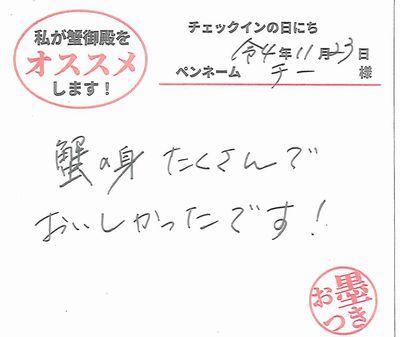 私が蟹御殿を
オススメ
します！
チェックインの日にち
令4年11月23日
ペンネーム チー 様
蟹の身 たくさんで
おいしかったです！
お墨
つき